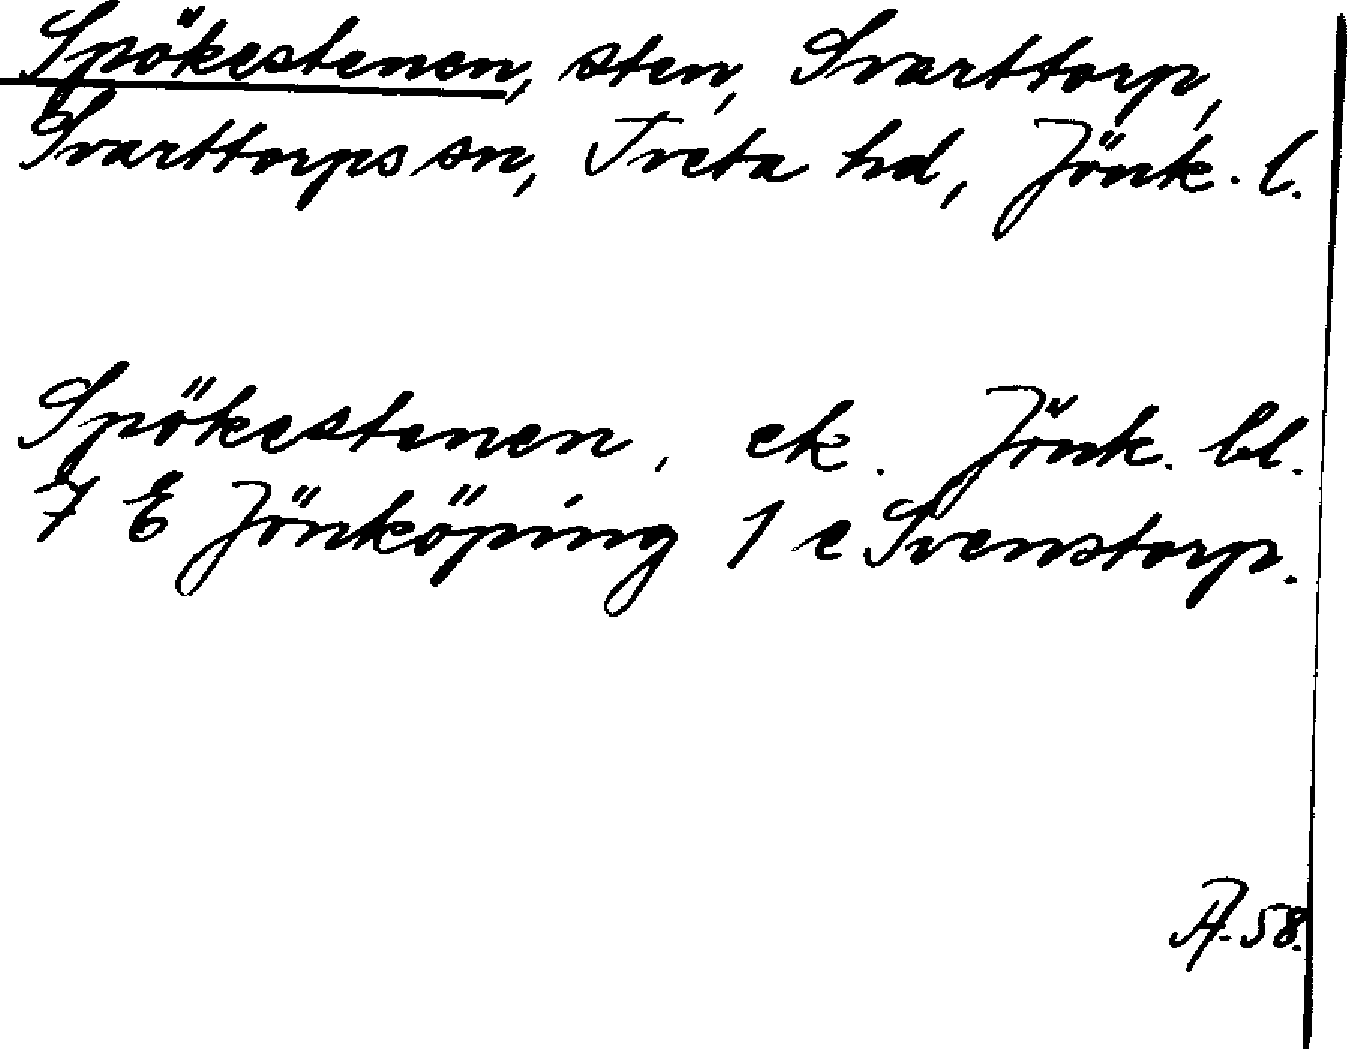 Spökestenen, sten, Svarttorp,
Svarttorps sn, Tveta hd, Jönk. l.
Spökestenen, ek. Jönk. bl.
7 E Jönköping 1 e Svenstorp.
58.